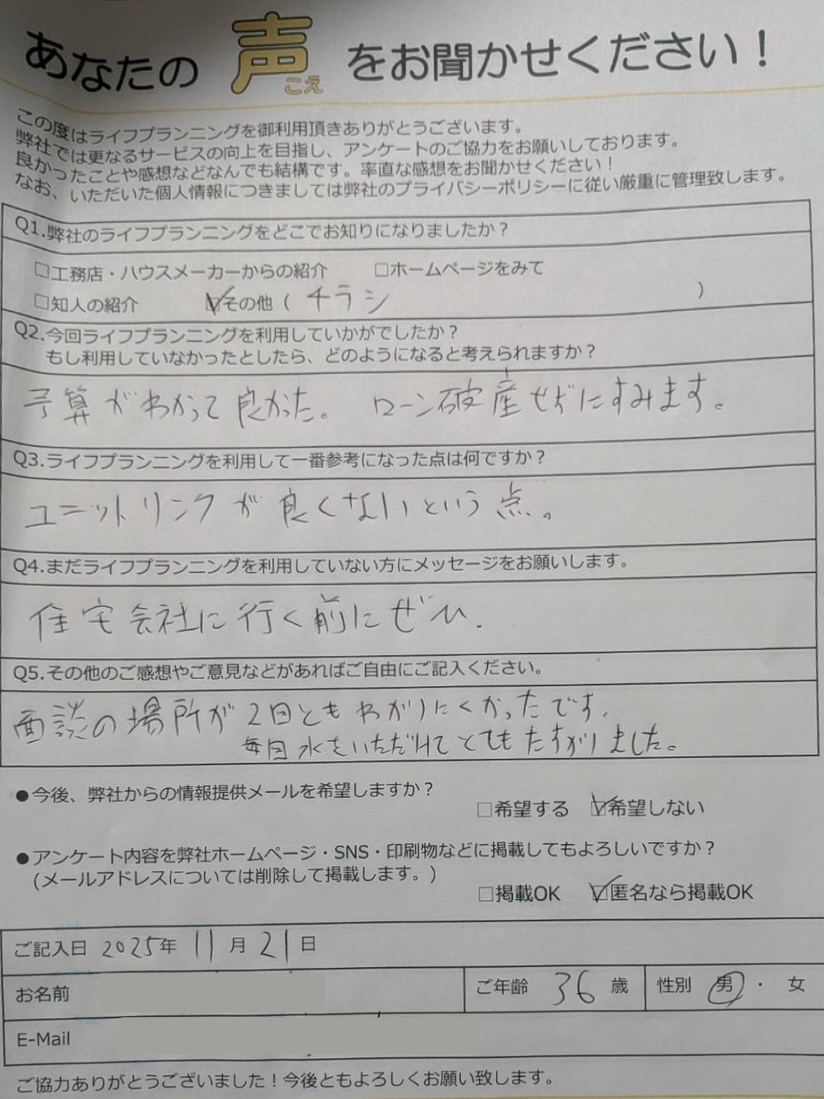 あなたの声をお聞かせください！
こえ
この度はライフプランニングを御利用頂きありがとうございます。
弊社では更なるサービスの向上を目指し、アンケートのご協力をお願いしております。
良かったことや感想などなんでも結構です。率直な感想をお聞かせください！
なお、いただいた個人情報につきましては弊社のプライバシーポリシーに従い厳重に管理致します。
Q1.弊社のライフプランニングをどこでお知りになりましたか？
□工務店・ハウスメーカーからの紹介 □ホームページをみて
□知人の紹介 ☑その他（ チラシ ）
Q2.今回ライフプランニングを利用していかがでしたか？
もし利用していなかったとしたら、どのようになると考えられますか？
予算がわかって良かった。 ローン破産せずにすみます。
Q3.ライフプランニングを利用して一番参考になった点は何ですか？
ユニットリンクが良くないという点。
Q4.まだライフプランニングを利用していない方にメッセージをお願いします。
住宅会社に行く前にぜひ.
Q5.その他のご感想やご意見などがあればご自由にご記入ください。
面談の場所が2回ともわかりにくかったです.
毎回水をいただけてとてもたすかりました。
●今後、弊社からの情報提供メールを希望しますか？
□希望する ☑希望しない
●アンケート内容を弊社ホームページ・SNS・印刷物などに掲載してもよろしいですか？
(メールアドレスについては削除して掲載します。)
□掲載OK ☑匿名なら掲載OK
ご記入日 2025年 11月 21日
お名前 ご年齢 36歳 性別 男・女
E-Mail
ご協力ありがとうございました！今後ともよろしくお願い致します。